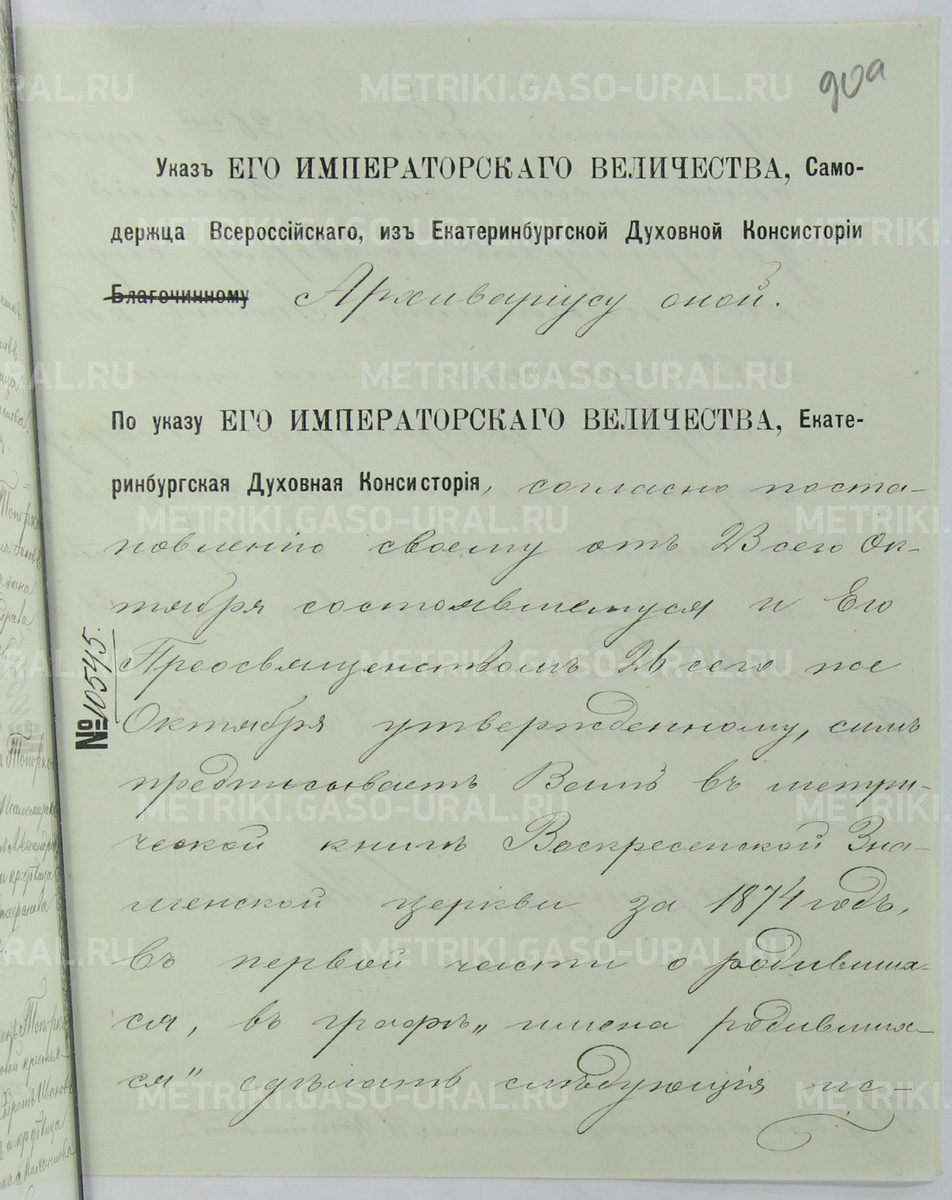 90а
Указъ ЕГО ИМПЕРАТОРСКАГО ВЕЛИЧЕСТВА, Само-
держца Всероссійскаго, изъ Екатеринбургской Духовной Консисторіи
Благочинному Архиваріусу оной.
По указу ЕГО ИМПЕРАТОРСКАГО ВЕЛИЧЕСТВА, Екате-
ринбургская Духовная Консисторія, согласно поста-
новленію своему отъ 23 сего Ок-
тября состоявшемуся и Его
Преосвященствомъ 26 сего же
Октября утвержденному, симъ
предписываетъ Вамъ въ метри-
ческой книгѣ Воскресенской Зна-
менской церкви за 1874 годъ,
въ первой части о родивших-
ся, въ графѣ „имена родивших-
ся" сдѣлать слѣдующія ис-
№ 10545.
METRIKI.GASO-URAL.RU